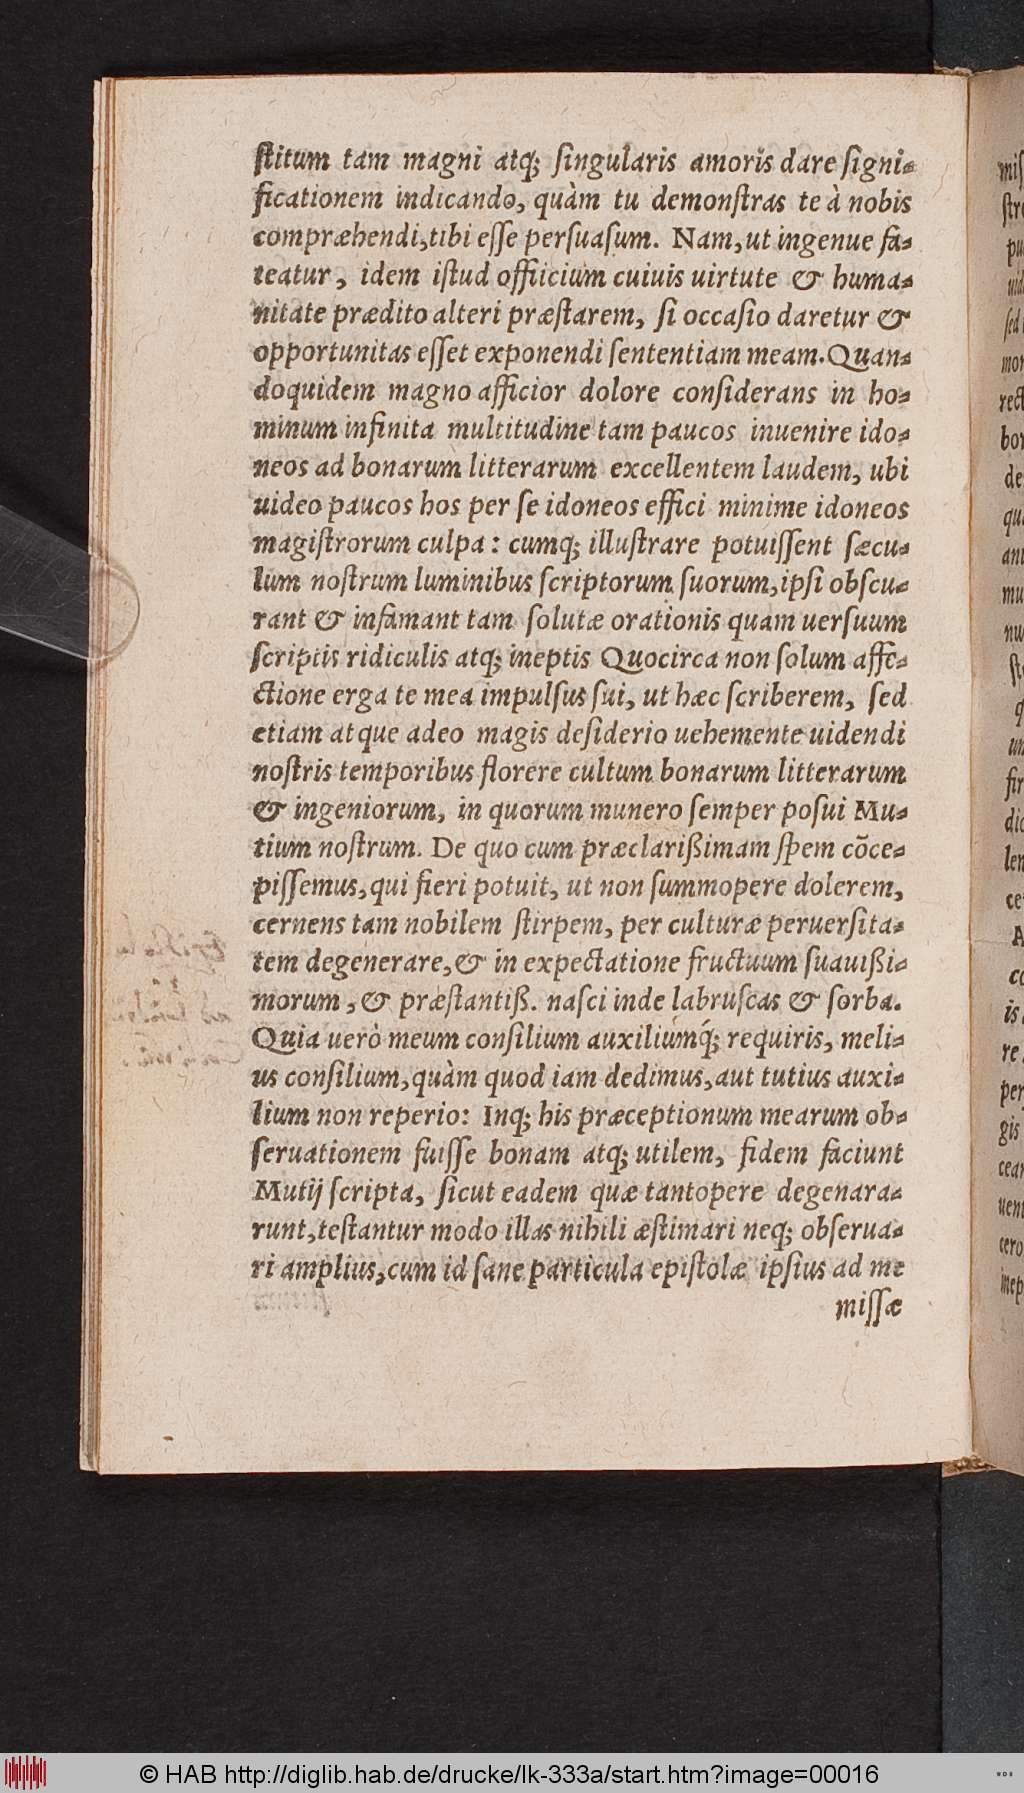 ſtitum tam magni atq; ſingularis amoris dare ſigni-
ficationem indicando, quàm tu demonſtras te à nobis
compræhendi, tibi eſſe perſuaſum. Nam, ut ingenue fa-
teatur, idem iſtud offiicium cuiuis uirtute & huma-
nitate prædito alteri præſtarem, ſi occaſio daretur &
opportunitas eſſet exponendi ſententiam meam. Quan-
doquidem magno afficior dolore conſiderans in ho-
minum infinita multitudine tam paucos inuenire ido-
neos ad bonarum litterarum excellentem laudem, ubi
uideo paucos hos per ſe idoneos effici minime idoneos
magiſtrorum culpa: cumq; illuſtrare potuiſſent ſæcu-
lum noſtrum luminibus ſcriptorum ſuorum, ipſi obſcu-
rant & infamant tam ſolutæ orationis quam uerſuum
ſcriptis ridiculis atq; ineptis Quocirca non ſolum affe-
ctione erga te mea impulſus ſui, ut hæc ſcriberem, ſed
etiam atque adeo magis deſiderio uehemente uidendi
noſtris temporibus florere cultum bonarum litterarum
& ingeniorum, in quorum munero ſemper poſui Mu-
tium noſtrum. De quo cum præclarißimam ſpem cõce-
piſſemus, qui fieri potuit, ut non ſummopere dolerem,
cernens tam nobilem ſtirpem, per culturæ peruerſita-
tem degenerare, & in expectatione fructuum ſuauißi-
morum, & præſtantiß. naſci inde labruſcas & ſorba.
Quia uerò meum conſilium auxiliúmq́; requiris, meli-
us conſilium, quàm quod iam dedimus, aut tutius auxi-
lium non reperio: Inq; his præceptionum mearum ob-
ſeruationem fuiſſe bonam atq; utilem, fidem faciunt
Mutij ſcripta, ſicut eadem quæ tantopere degenara-
runt, teſtantur modo illas nihili æſtimari neq; obſerua-
ri amplius, cum id ſane particula epiſtolæ ipſius ad me
miſſæ
© HAB http://diglib.hab.de/drucke/lk-333a/start.htm?image=00016